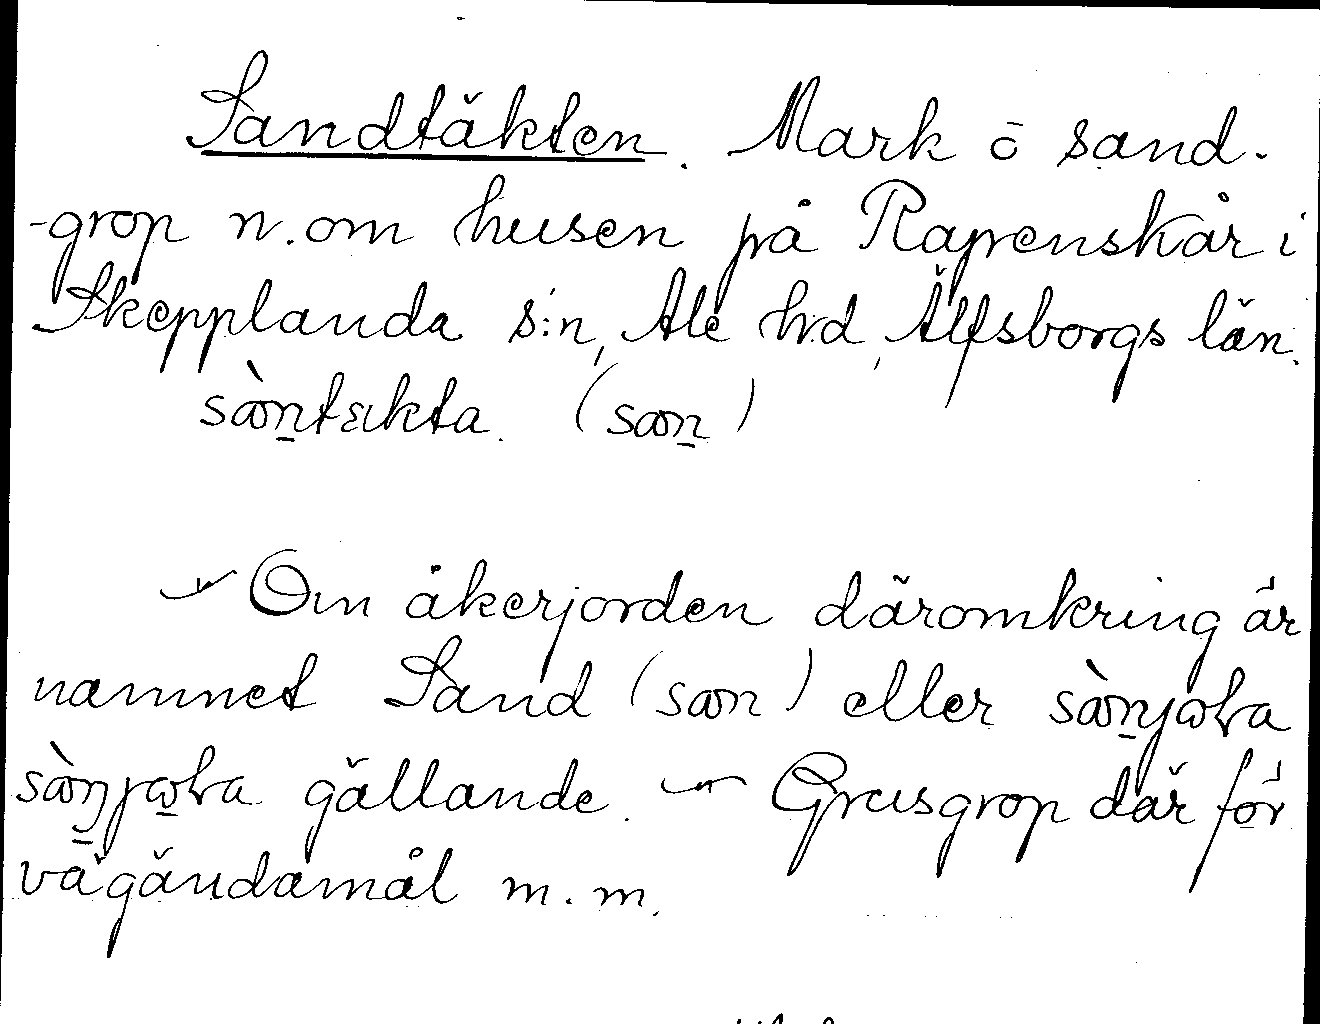 Sandtäkten. Mark o sand-
-grop n. om husen på Rapenskår i
Skepplanda s:n, Ale hd, Älfsborgs län.
sàntækta. (san)
– Om åkerjorden däromkring är
namnet Sand (san) eller
gällande. – Grusgrop där för
vägändamål m.m.